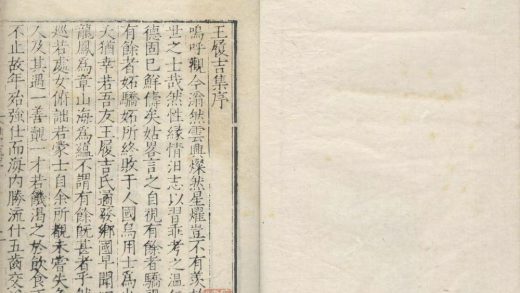 王履吉集序
嗚呼觀今滃然雲興燦然星燿豈不有羨
世之士哉然性緣情汩志以習乖考之温
德固已鮮儔矣姑畧言之自視有餘者驕
有餘者妬驕妬所終收于人國烏用士為
天猶幸若吾友王履吉氏道發鄉國早聞
龍鳳為章山海為蘊不謂有餘既甚者乎
巡若處女俯詘若蒙士自余所觀未嘗失
人及其遇一善覿一才若饑渴之於飲食
不止故年殆強仕而海內勝流什五齒交